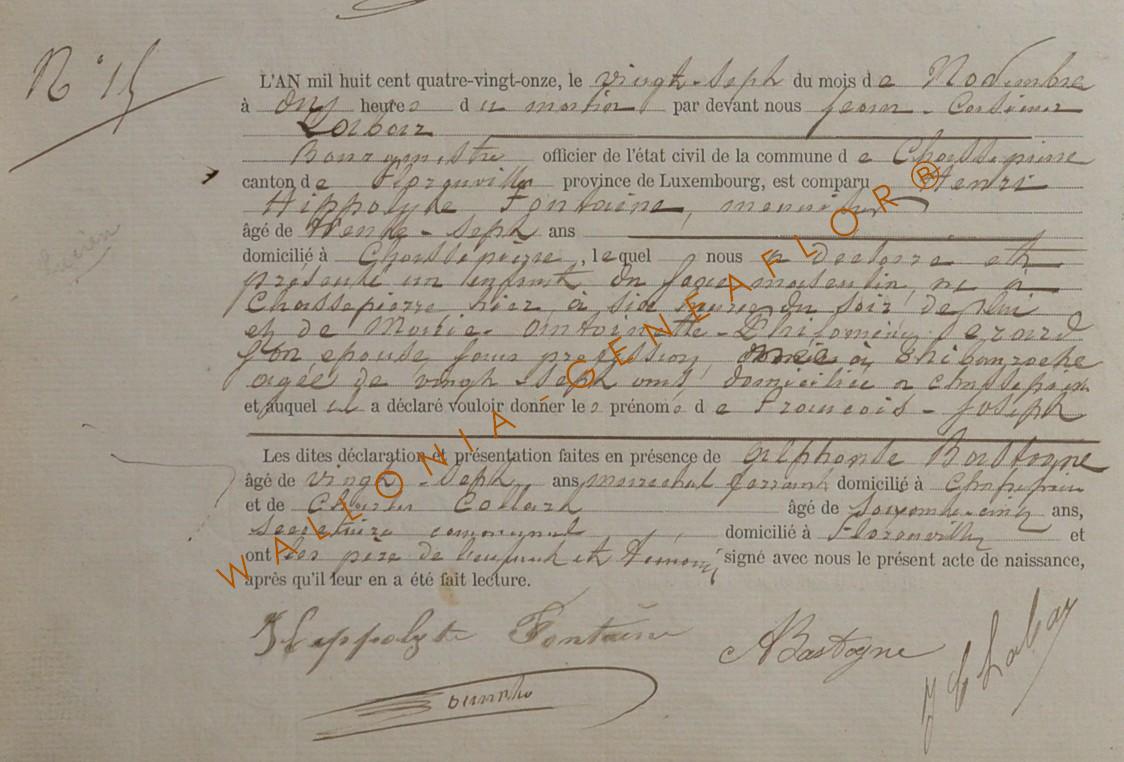 N° 15
L'AN mil huit cent quatre-vingt-onze, le vingt-sept du mois de Novembre
à dix heures du matin par devant nous Jean-Casimir
Labar
Bourgmestre officier de l'état civil de la commune de Chassepierre
canton de Florenville province de Luxembourg, est comparu Henri
Hippolyte Fontaine, menuisier
âgé de Trente-sept ans
domicilié à Chassepierre, lequel nous a déclaré et
présenté un enfant du sexe masculin, né à
Chassepierre hier à six heures du soir de lui
et de Marie-Antoinette-Philomène Gerard
son épouse sans profession, née à
agée de vingt-sept ans, domiciliée à Chassepierre
et auquel il a déclaré vouloir donner les prénoms de François-Joseph
Les dites déclaration et présentation faites en présence de Alphonse Bastogne
âgé de vingt-sept ans, marechal ferrant domicilié à Chassepierre
et de Collard âgé de soixante-cinq ans,
secretaire communal domicilié à Florenville et
ont les père de l'enfant et témoins signé avec nous le présent acte de naissance,
après qu'il leur en a été fait lecture.
Hippolyte Fontaine
ABastogne
JCLabar
WALLONIA-GENEAFLOR®